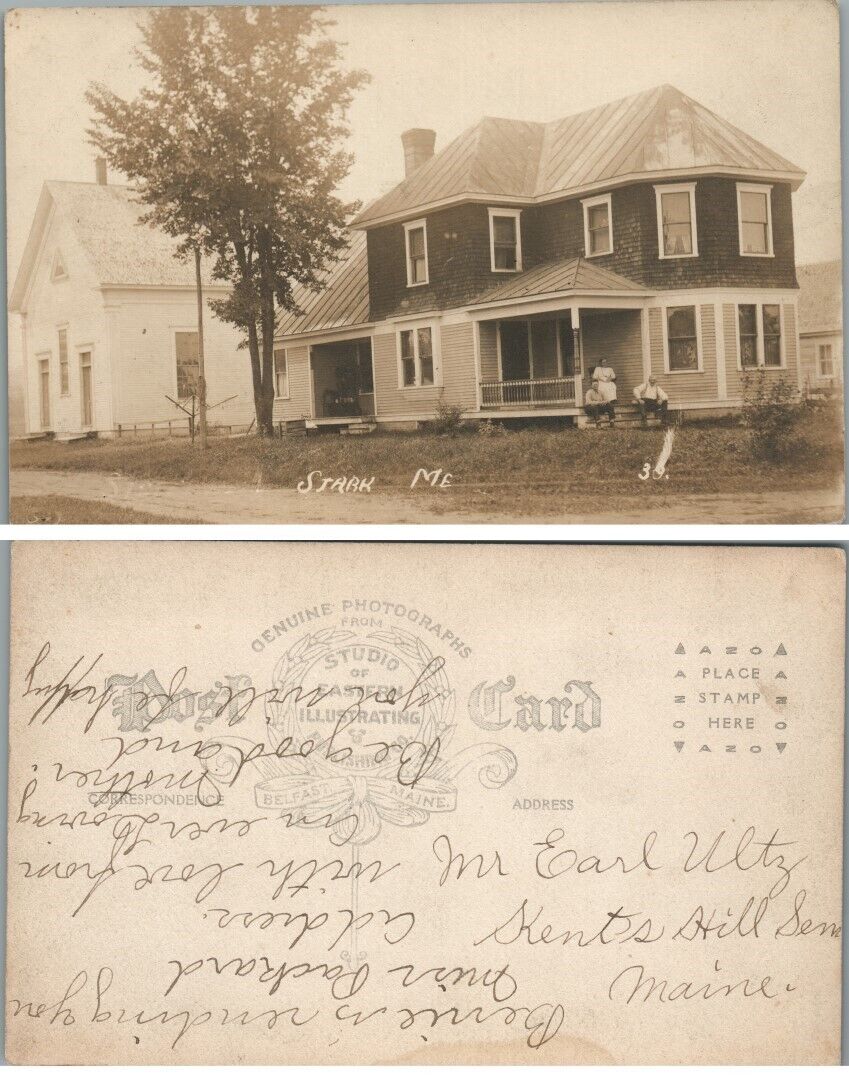 STARK ME 38.
GENUINE PHOTOGRAPHS
FROM
STUDIO
OF
EASTERN
ILLUSTRATING
&
PUBLISHING CO.
BELFAST, MAINE.
Post Card
CORRESPONDENCE
ADDRESS
AZO
PLACE
STAMP
HERE
AZO
Mr Earl Ultz
Kent's Hill Sem
Maine.
Bernie is sending you
Miss Packard
address.
with love from
an everloving
mother.
Be good and
you will be happy